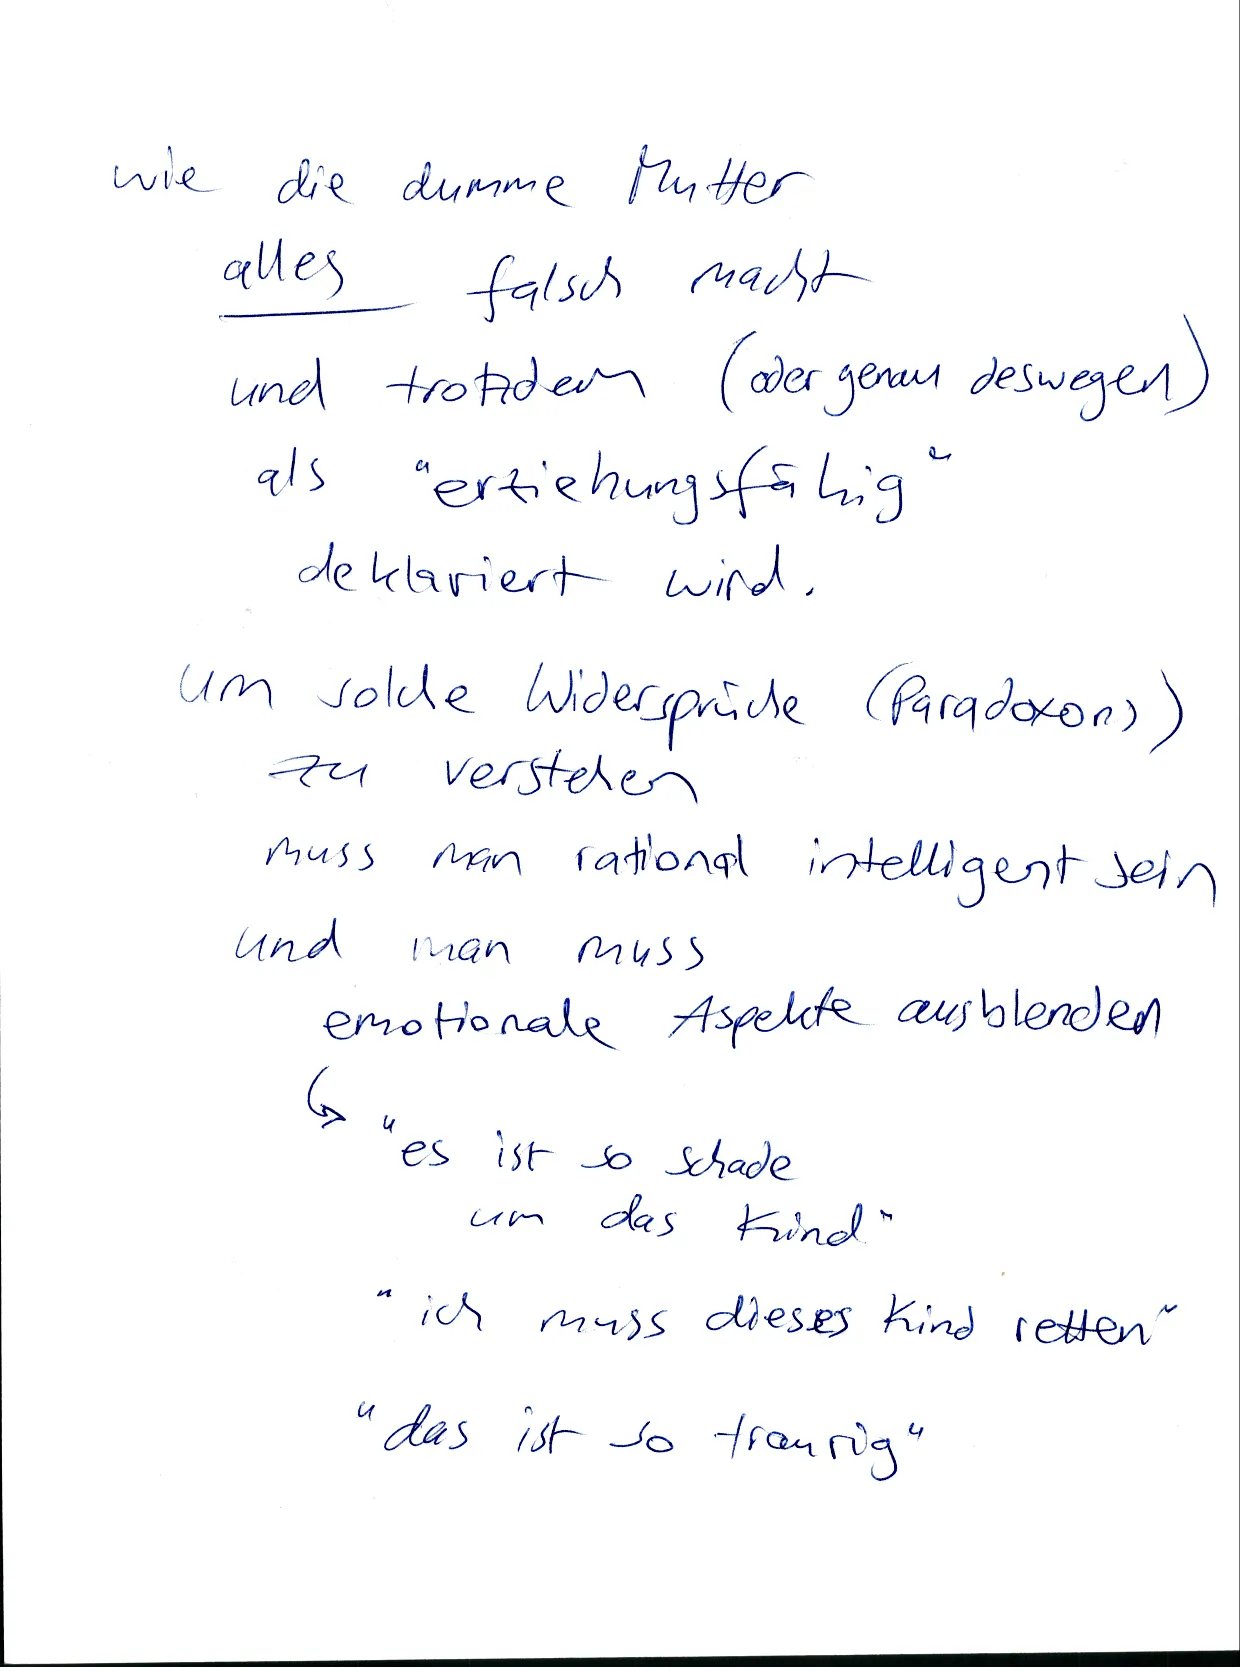 wie die dumme Mutter
alles falsch macht
und trotzdem (oder genau deswegen)
als "erziehungsfähig"
deklariert wird.
um solche Widersprüche (Paradoxons)
zu verstehen
muss man rational intelligent sein
und man muss
emotionale Aspekte ausblenden
↳ "es ist so schade
um das Kind"
"ich muss dieses Kind retten"
"das ist so traurig"